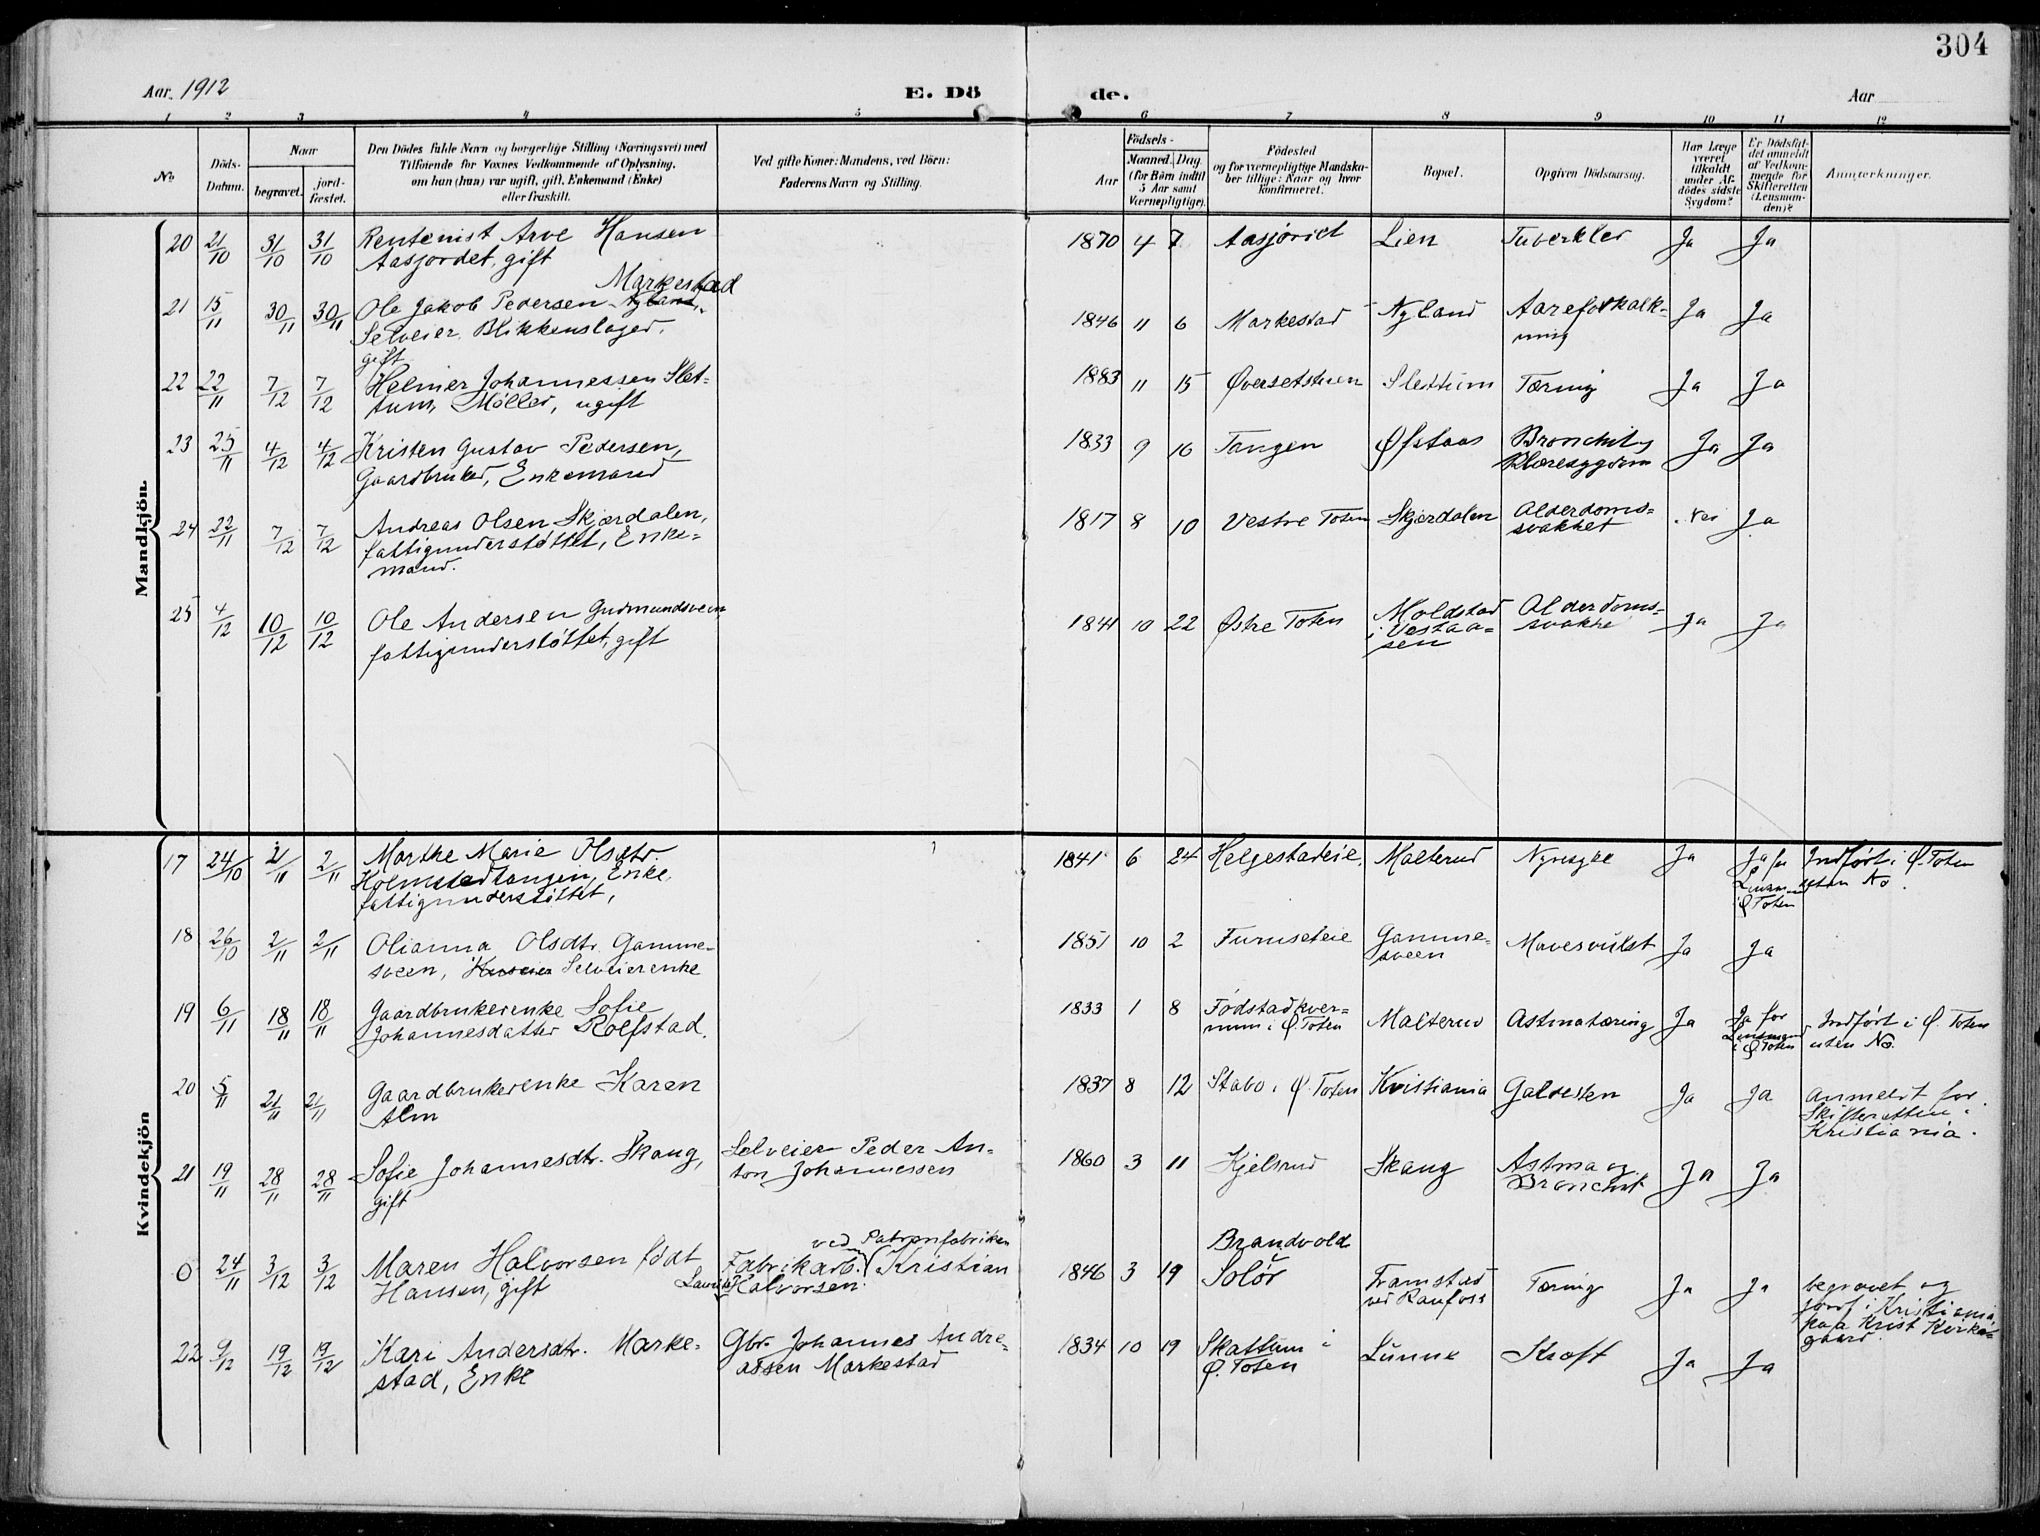 304
Aar 1912
E. Dö
de.
Aar
1 2 3 4 5 6 7 8 9 10 11 12
No
Döds-
Datum.
Naar
begravet.
jord-
fæstet.
Den Dödes fulde Navn og borgerlige Stilling (Næringsvei) med
Tilföiende for Voxnes Vedkommende af Oplysning,
om han (hun) var ugift, gift, Enkemand (Enke)
eller fraskilt.
Ved gifte Koner: Mandens, ved Börn:
Faderens Navn og Stilling.
Födsels-
Aar
Maaned.
Dag
(for Börn indtil
5 Aar samt
Værnepligtige).
Födested
og for værnepligtige Mandska-
ber tillige: Naar og hvor
konfirmeret.
Bopæl.
Opgiven Dödsaarsag.
Har Læge
været
tilkaldt
under Af-
dödes sidste
Sygdom?
Er Dödsfal-
det anmeldt
af Vedkom-
mende for
Skifteretten
(Lensman-
den)?
Anmærkninger.
Mandkjön.
20 21/10 31/10 31/10 Rentenist Arve Hansen
Aasjordet, gift
1870 4 7 Aasjordet Lien Tuberkler Ja Ja
Markestad
21 15/11 30/11 30/11 Ole Jakob Pedersen Nyland,
Selveier, Blikkenslager,
gift
1846 11 6 Markestad Nyland Aareforkalk-
ning
Ja Ja
22 22/11 7/12 7/12 Helmer Johannessen Slet-
tum, Møller, ugift
1883 11 15 Øversetstuen Slettum Tæring Ja Ja
23 25/11 4/12 4/12 Kristen Gustav Pedersen,
Gaardbruker, Enkemand
1833 9 16 Tangen Øfstaas Bronchit og
Blæresygdom
Ja Ja
24 22/11 7/12 7/12 Andreas Olsen Skjærdalen,
fattigunderstøttet, Enke-
mand.
1817 8 10 Vestre Toten Skjærdalen Alderdoms-
svakhet
Nei Ja
25 4/12 10/12 10/12 Ole Andersen Gudmundsveen
fattigunderstøttet, gift
1841 10 22 Østre Toten Moldstad
i Vestaa-
sen
Alderdoms-
svakhe
Ja Ja
Kvindekjön
17 24/10 2/11 2/11 Marthe Marie Olsdtr.
Holmstedtangen, Enke,
fattigunderstøttet,
1841 6 24 Helgestadeie, Malterud Nyresyke Ja Ja for
Lensm
i Ø Toten
Indført i Ø. Toten
uten No.
18 26/10 2/11 2/11 Olianna Olsdtr. Gamme-
sveen, Selveierenke
1851 10 2 Furuseteie Gamme-
sveen
Mavesvulst Ja Ja
19 6/11 18/11 18/11 Gaardbrukerenke Sofie
Johannesdatter Rolfstad.
1833 1 8 Fødstadkver-
num i Ø Toten
Malterud Astmatæring Ja Ja for
Lensmand
i Ø Toten
Indført i Ø. Toten
uten No.
20 5/11 21/11 21/11 Gaardbrukerenke Karen
Alm
1837 8 12 Stabo i Ø. Toten Kristiania Galdesten Ja Ja anmeldt for
Skifteretten i
Kristiania.
21 19/11 28/11 28/11 Sofie Johannesdtr. Skaug,
gift
Selveier Peder An-
ton Johannessen
1860 3 11 Kjelsrud Skaug Astma og
Bronchit
Ja Ja
0 24/11 3/12 3/12 Maren Halvorsen født
Hansen, gift
ved Patronfabriken
Fabrikarb. Kristian
Halvorsen.
1846 3 19 Brandvold
i Solør
Framstad
ved Raufoss
Tæring Ja Ja begravet og
jordf. i Kristiania
paa Krist Kirke-
gaard.
22 9/12 19/12 19/12 Kari Andersdtr. Marke-
stad, Enke
Gbr. Johannes Andre-
assen Markestad
1834 10 19 Skattum i
Ø. Toten
Lunne Kræft Ja Ja